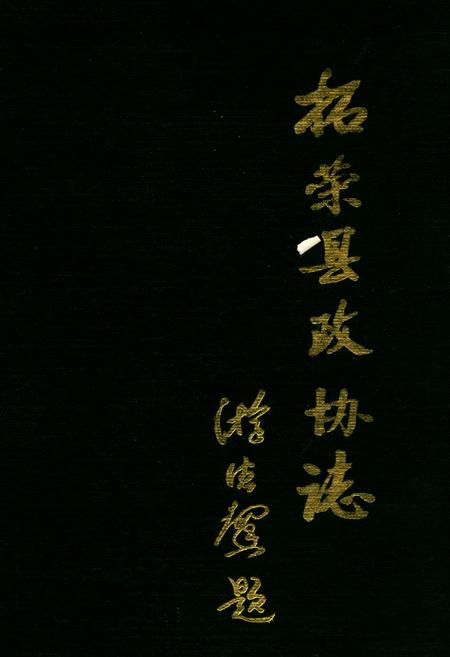 柘荣县政协誌
游德馨题